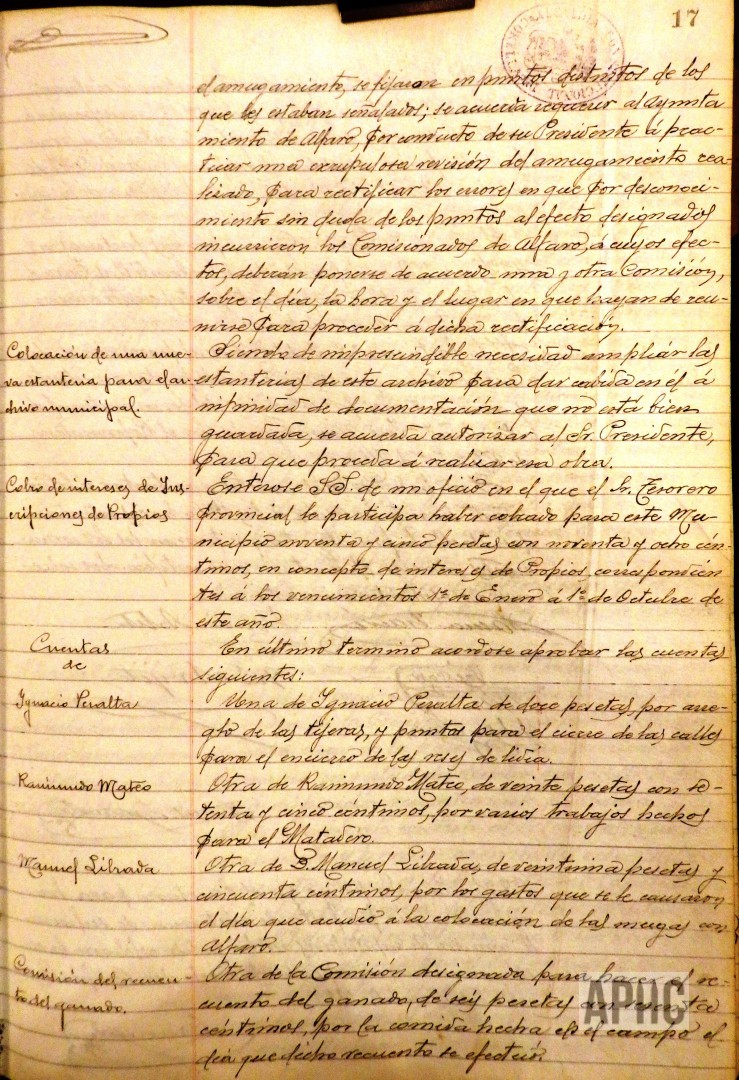 17
el amugamiento, se fijaron en puntos distintos de los
que les estaban señalados; se acuerda requerir al Ayunta
miento de Alfaro, por conducto de su Presidente á prac-
ticar una escrupulosa revisión del amugamiento rea-
lizado, para rectificar los errores en que por desconoci-
miento sin duda de los puntos al efecto designados
incurrieron los Comisionados de Alfaro, á cuyos efec-
tos, deberán ponerse de acuerdo una y otra Comisión,
sobre el día, la hora y el lugar en que hayan de reu-
nirse para proceder á dicha rectificación.
Colocación de una nue-
va estantería para el ar-
chivo municipal.
Siendo de imprescindible necesidad ampliar las
estanterías de este archivo para dar cabida en él á
infinidad de documentación que no está bien
guardada, se acuerda autorizar al Sr. Presidente,
para que proceda á realizar esa obra.
Cobro de intereses de Ins-
cripciones de Propios
Enterose S.S. de un oficio en el que el Sr. Tesorero
provincial le participa haber cobrado para este Mu-
nicipio noventa y cinco pesetas con noventa y ocho cén-
timos, en concepto de interes de Propios correspondien
tes á los vencimientos 1º de Enero á 1º de Octubre de
este año.
Cuentas
de
En último termino acordose aprobar las cuentas
siguientes:
Ygnacio Peralta
Una de Ignacio Peralta de doce pesetas, por arre-
glo de las tijeras, y puntos para el cierre de las calles
para el encierro de las reses de lidia.
Raimundo Mateo
Otra de Raimundo Mateo, de veinte pesetas con se-
tenta y cinco céntimos, por varios trabajos hechos
para el Matadero.
Manuel Librada
Otra de D. Manuel Librada, de veintiuna pesetas y
cincuenta céntimos, por los gastos que se le causaron
el día que acudió á la colocación de las mugas con
Alfaro.
Comisión del recuen-
to del ganado.
Otra de la Comisión designada para hacer el re-
cuento del ganado, de seis pesetas con
céntimos, por la comida hecha en el campo el
día que dicho recuento se efectuó
APHC